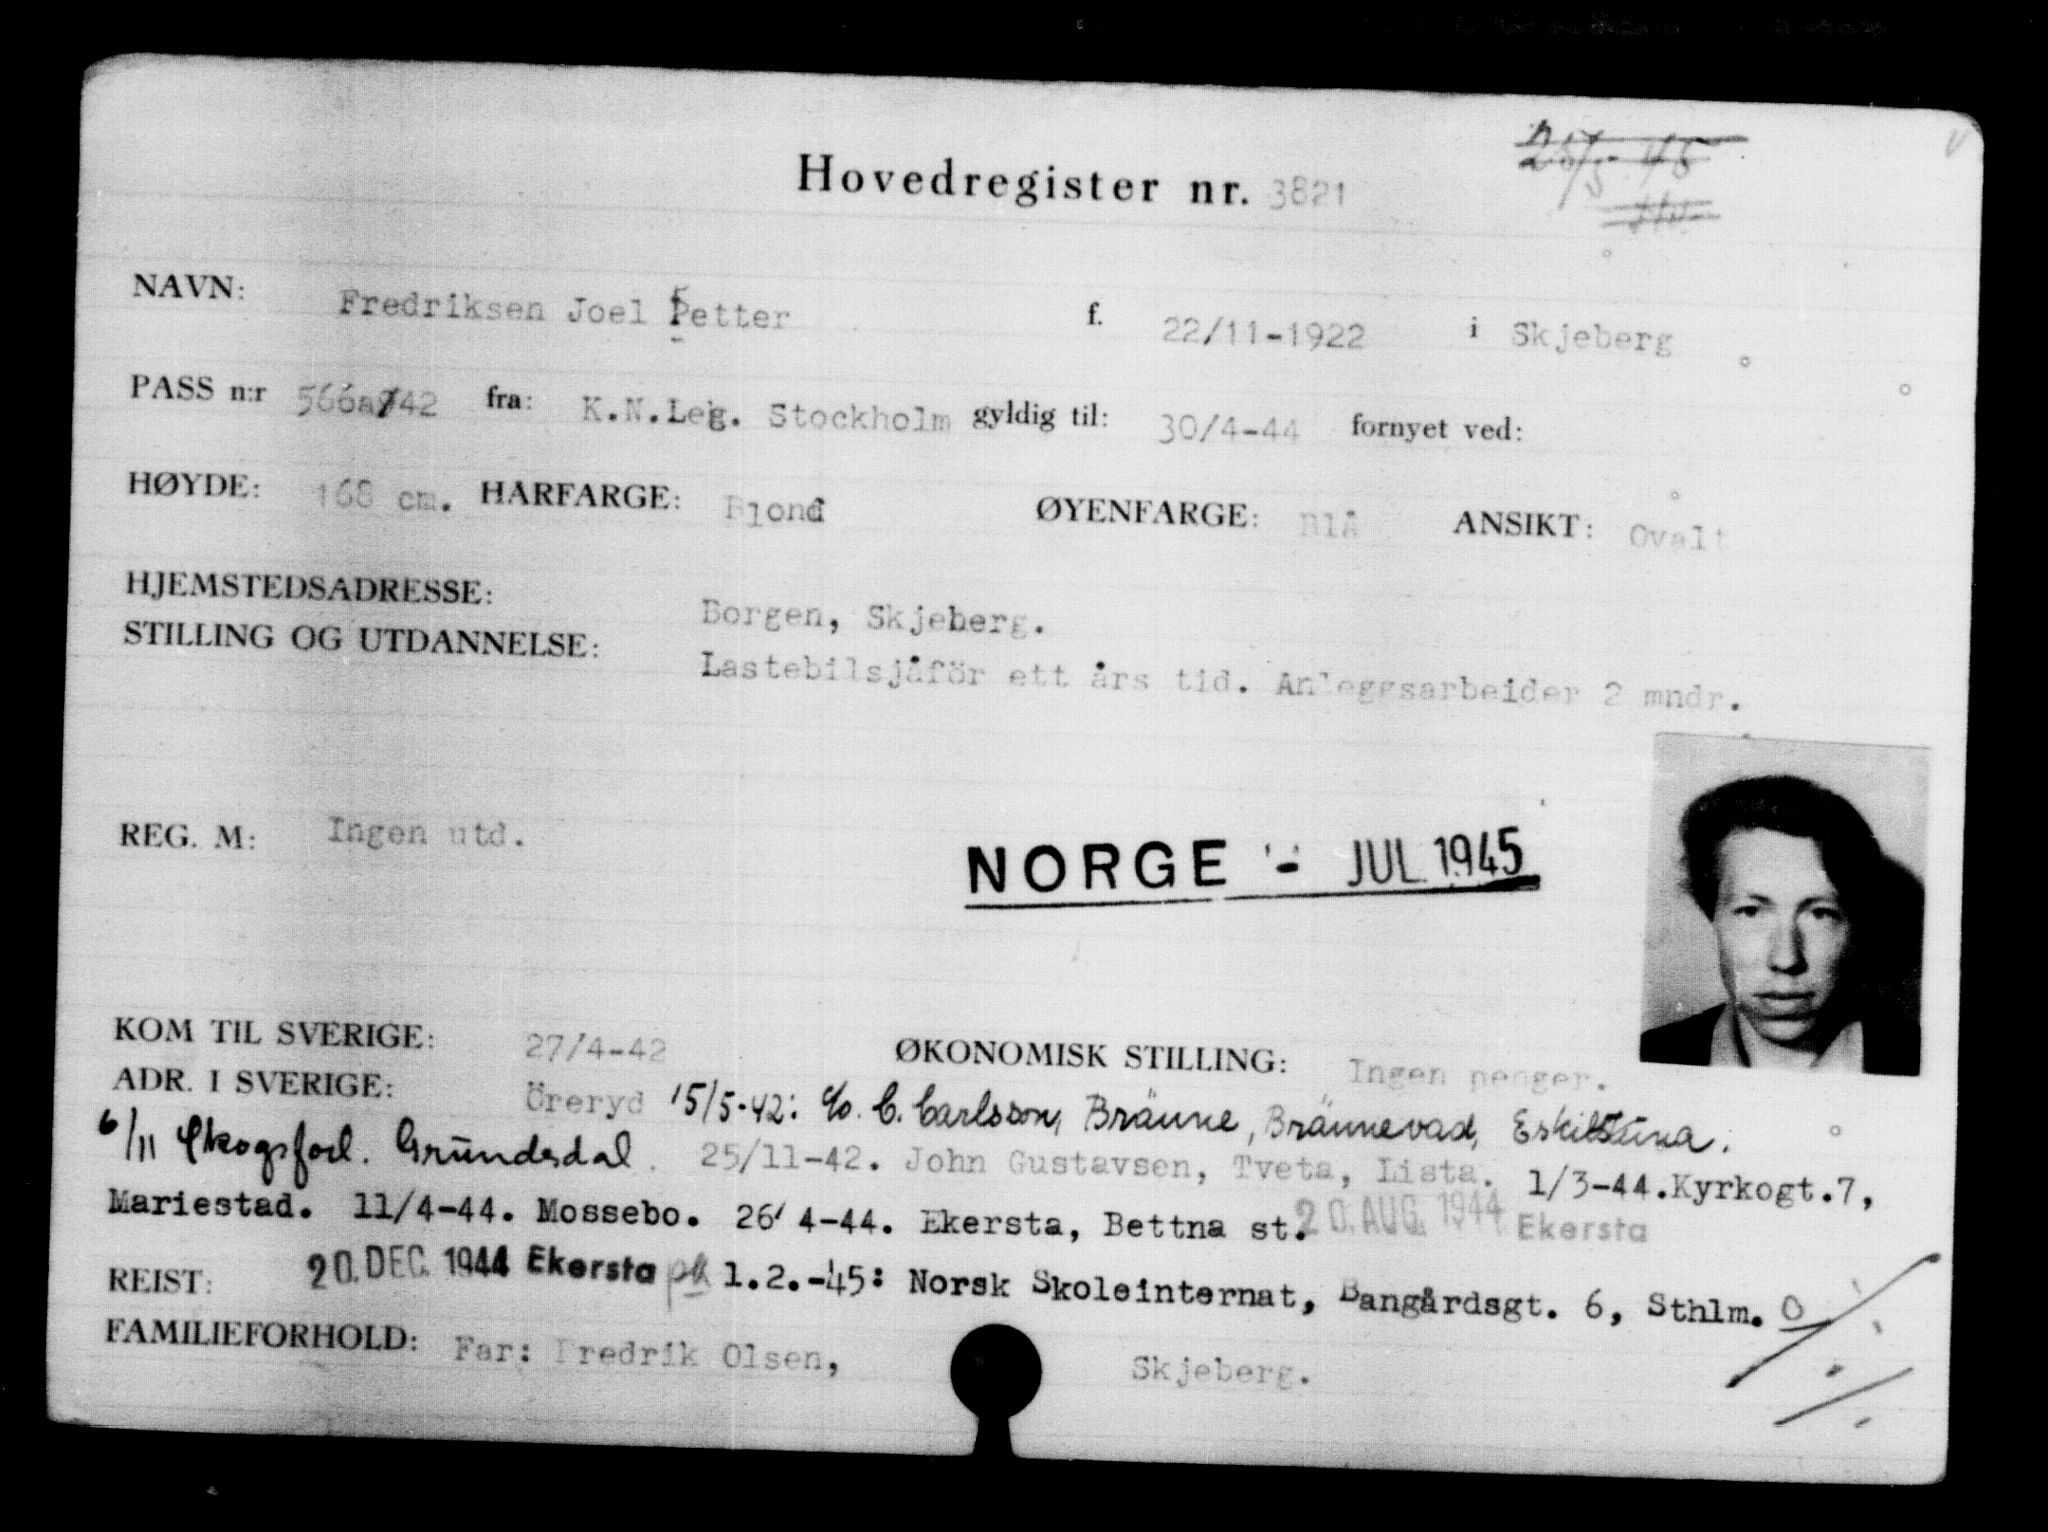 25/5-45
Hovedregister nr. 3821
NAVN: Fredriksen Joel Petter f. 22/11-1922 i Skjeberg
PASS n:r 566a/42 fra: K.N.Leg. Stockholm gyldig til: 30/4-44 fornyet ved:
HØYDE: 168 cm. HÅRFARGE: Blond ØYENFARGE: Blå ANSIKT: Ovalt
HJEMSTEDSADRESSE: Borgen, Skjeberg.
STILLING OG UTDANNELSE: Lastebilsjåför ett års tid. Anleggsarbeider 2 mndr.
REG. M: Ingen utd.
NORGE - JUL 1945
KOM TIL SVERIGE: 27/4-42 ØKONOMISK STILLING: Ingen penger.
ADR. I SVERIGE: Öreryd 15/5-42: c/o. C. Carlsson, Bränne, Brännevad, Eskilstuna.
6/11 Skogsförl. Grundsdal. 25/11-42. John Gustavsen, Tveta, Lista. 1/3-44. Kyrkogt.7,
Mariestad. 11/4-44. Mossebo. 26/4-44. Ekersta, Bettna st. 20. AUG. 1944 Ekersta
REIST: 20. DEC. 1944 Ekersta 1.2.-45: Norsk Skoleinternat, Bangårdsgt. 6, Sthlm.
FAMILIEFORHOLD: Far: Fredrik Olsen, Skjeberg.